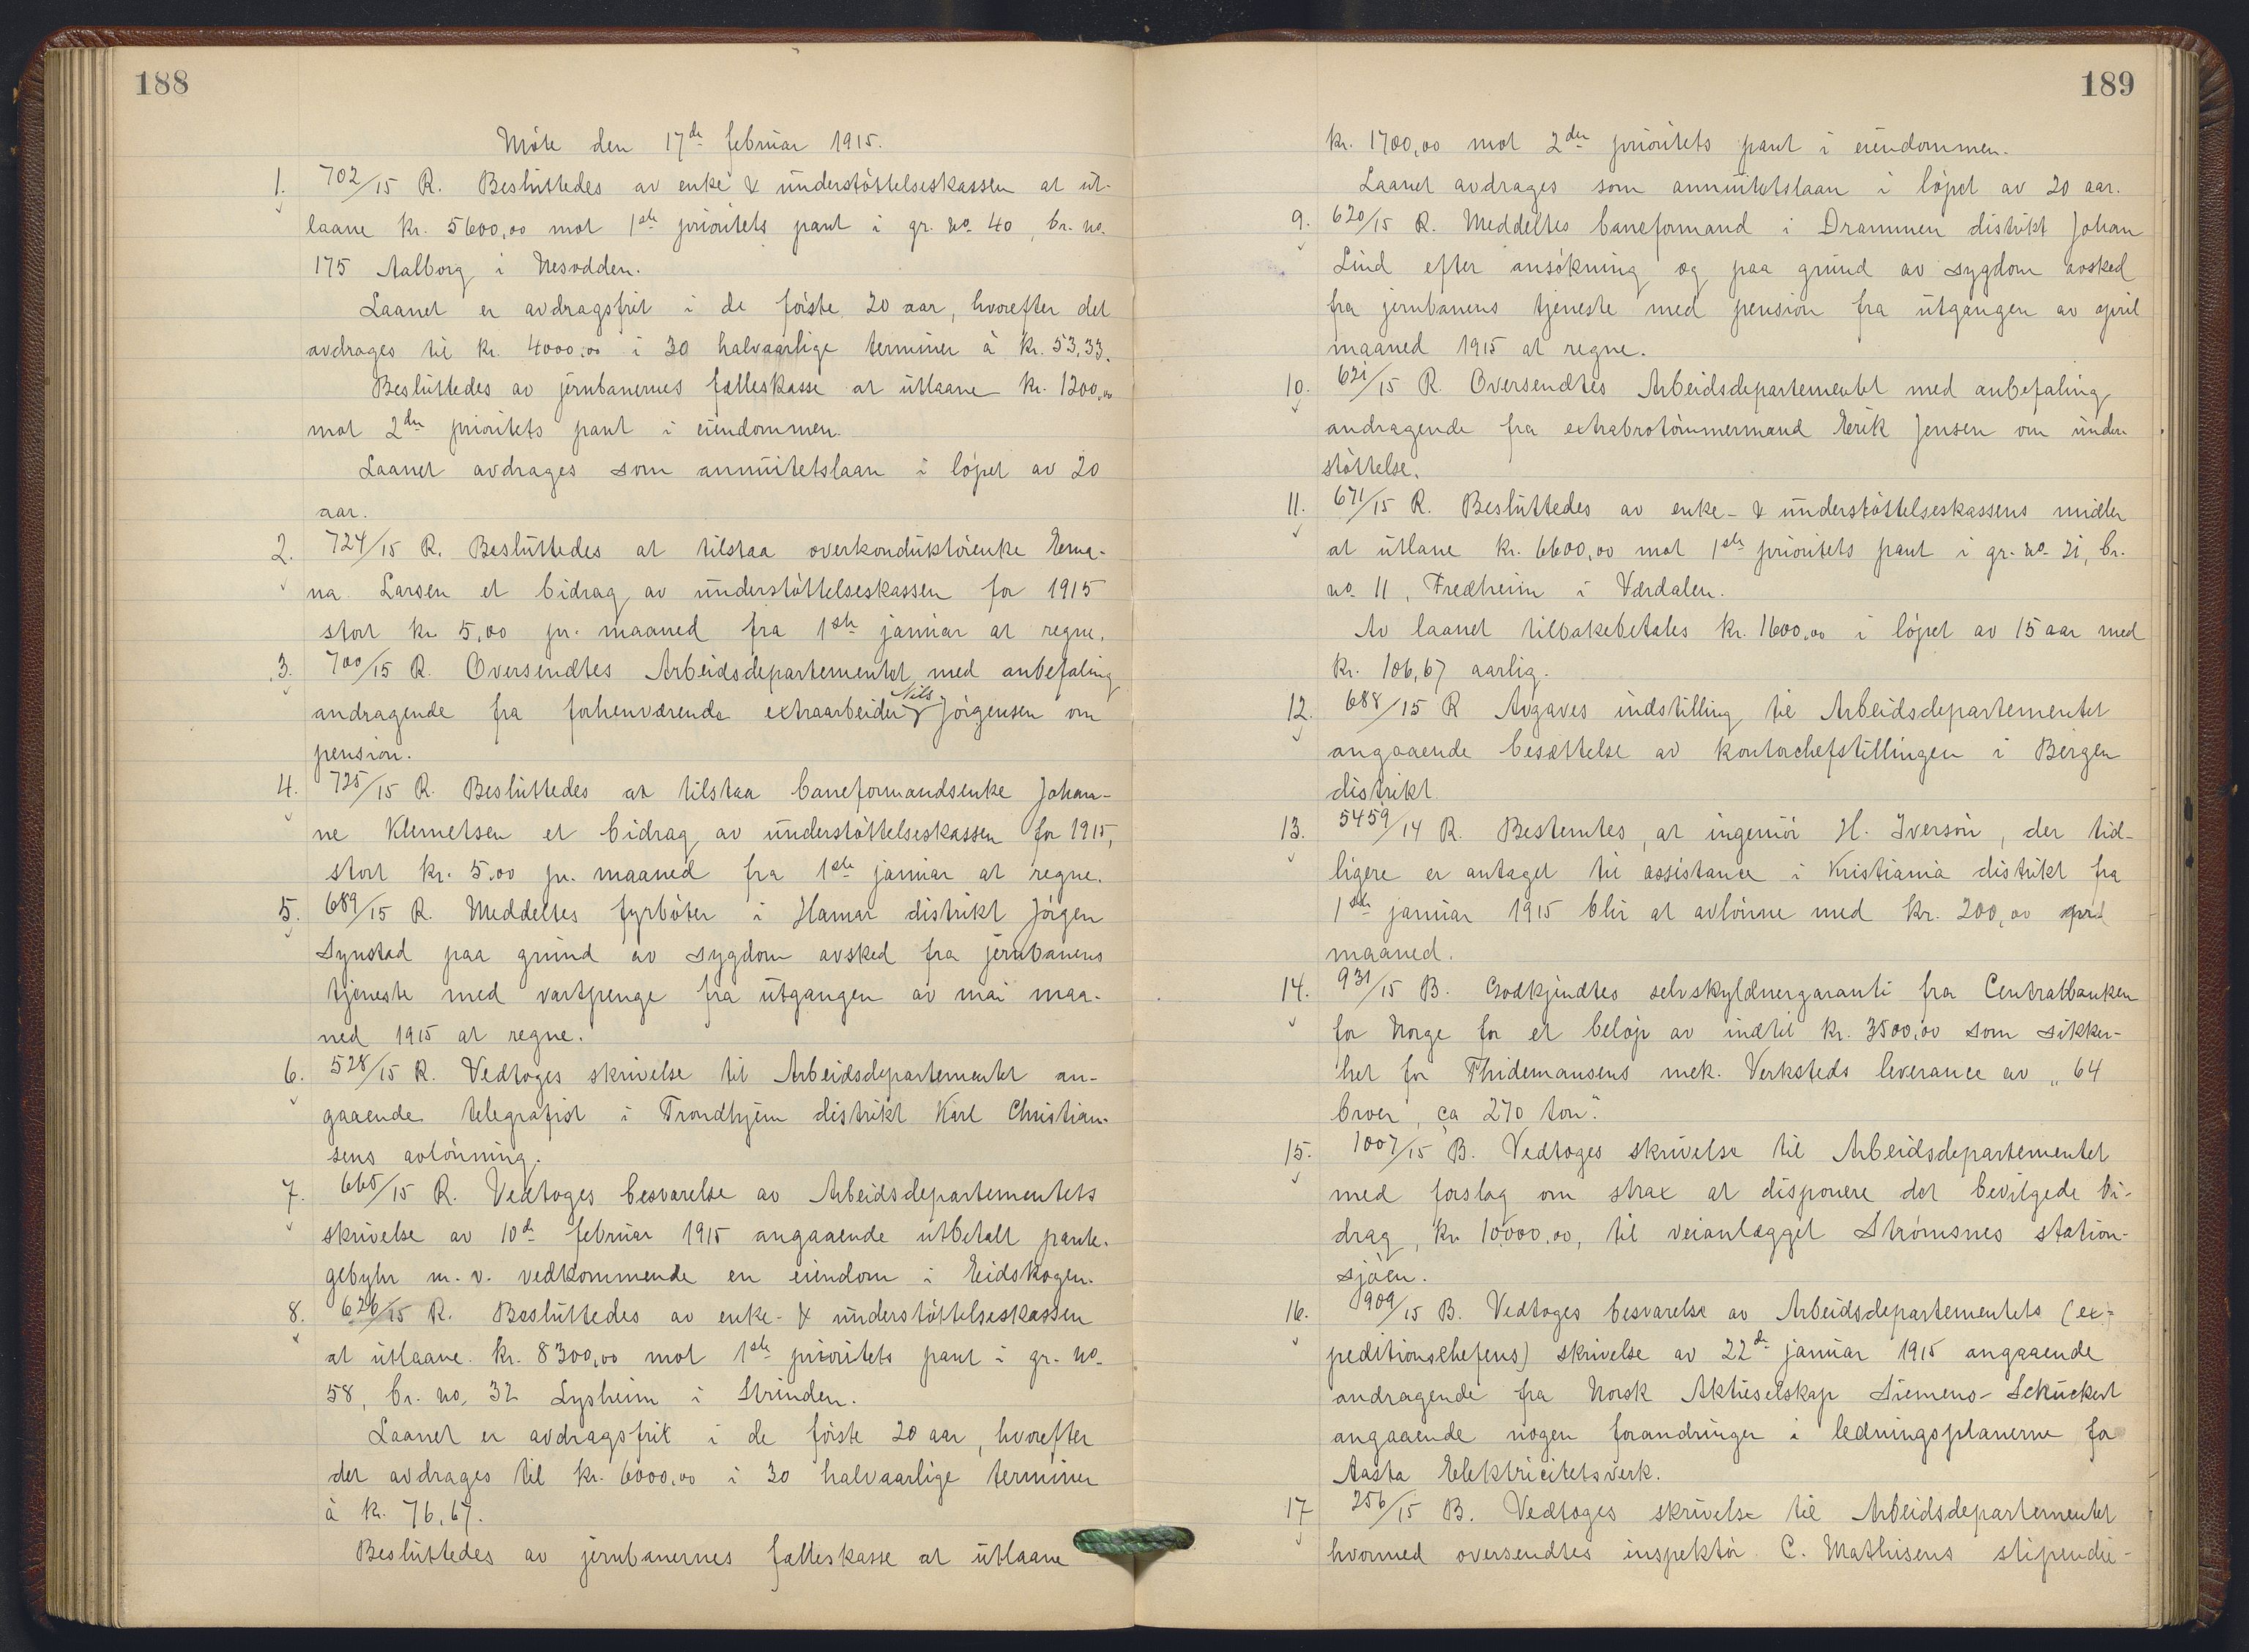 188
Möte den 17de februar 1915.
1. 702/15 R. Besluttedes av enke & understöttelseskassen at ut-
laane kr. 5600,00 mot 1ste prioritets pant i gr. no. 40, br. no.
175 Aalborg i Nesodden.
Laanet er avdragsfrit i de förste 20 aar, hvorefter det
avdrages til kr. 4000,00 i 30 halvaarlige terminer à kr. 53,33.
Besluttedes av jernbanernes fælleskasse at utlaane kr. 1200,00
mot 2den prioritets pant i eiendommen.
Laanet avdrages som annuitetslaan i löpet av 20
aar.
2. 724/15 R. Besluttedes at tilstaa overkonduktörenke Erma-
na Larsen et bidrag av understöttelseskassen for 1915
stort kr. 5,00 pr. maaned fra 1ste januar at regne.
3. 700/15 R. Oversendtes Arbeidsdepartementet med anbefaling
andragende fra forhenværende extraarbeider Nils Jörgensen om
pension.
4. 725/15 R. Besluttedes at tilstaa baneformandsenke Johan-
ne Klemetsen et bidrag av understöttelseskassen for 1915,
stort kr. 5,00 pr. maaned fra 1ste januar at regne.
5. 689/15 R. Meddeltes fyrböter i Hamar distrikt Jörgen
Synstad paa grund av sygdom avsked fra jernbanens
tjeneste med vartpenge fra utgangen av mai maa-
ned 1915 at regne.
6. 528/15 R. Vedtoges skrivelse til Arbeidsdepartementet an-
gaaende telegrafist i Trondhjem distrikt Karl Christian-
sens avlönning.
7. 665/15 R. Vedtoges besvarelse av Arbeidsdepartementets
skrivelse av 10de februar 1915 angaaende utbetalt pante-
gebyhr m. v. vedkommende en eiendom i Eidskogen.
8. 626/15 R. Besluttedes av enke- & understöttelseskassen
at utlaane kr. 8300,00 mot 1ste prioritets pant i gr. no.
58, br. no. 32 Lysheim i Strinden.
Laanet er avdragsfrit i de förste 20 aar, hvorefter
det avdrages til kr. 6000,00 i 30 halvaarlige terminer
à kr. 76,67.
Besluttedes av jernbanernes fælleskasse at utlaane
189
kr. 1700,00 mot 2den prioritets pant i eiendommen.
Laanet avdrages som annuitetslaan i löpet av 20 aar.
9. 620/15 R. Meddeltes baneformand i Drammen distrikt Johan
Lind efter ansökning og paa grund av sygdom avsked
fra jernbanens tjeneste med pension fra utgangen av april
maaned 1915 at regne.
10. 621/15 R. Oversendtes Arbeidsdepartementet med anbefaling
andragende fra extrabrotömmermand Erik Jensen om under-
stöttelse.
11. 671/15 R. Besluttedes av enke- & understöttelseskassens midler
at utlane kr. 6600,00 mot 1ste prioritets pant i gr. no. 21, br.
no. 11, Fredheim i Værdalen.
Av laanet tilbakebetales kr. 1600,00 i löpet av 15 aar med
kr. 106,67 aarlig.
12. 688/15 R Avgaves indstilling til Arbeidsdepartementet
angaaende besættelse av kontorchefstillingen i Bergen
distrikt.
13. 5459/14 R. Bestemtes, at ingeniör H. Iversön, der tid-
ligere er antaget til assistance i Kristiania distrikt fra
1ste januar 1915 blir at avlönne med kr. 200,00 pr.
maaned.
14. 931/15 B. Godkjendtes selvskyldnergaranti fra Centralbanken
for Norge for et belöp av indtil kr. 3500,00 som sikker-
het for Thidemansens mek. Verksteds leverance av „64
broer, ca 270 ton".
15. 1007/15 B. Vedtoges skrivelse til Arbeidsdepartementet
med forslag om strax at disponere det bevilgede bi-
drag, kr. 10000,00, til veianlægget Strömsnes station-
sjöen.
16. 909/15 B. Vedtoges besvarelse av Arbeidsdepartementets (ex-
peditionschefens) skrivelse av 22de januar 1915 angaaende
andragende fra Norsk Aktieselskap Siemens-Schuckert
angaaende nogen forandringer i ledningsplanerne for
Aasta Elektricitetsverk.
17 256/15 B. Vedtoges skrivelse til Arbeidsdepartementet
hvormed oversendtes inspektör C. Mathisens stipendie-